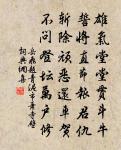 雄氣堂堂貫斗牛
誓將直節報君仇
斬除頑惡還車駕
不問登壇萬戶侯
岳飛題青泥市蕭寺壁
詞典網書